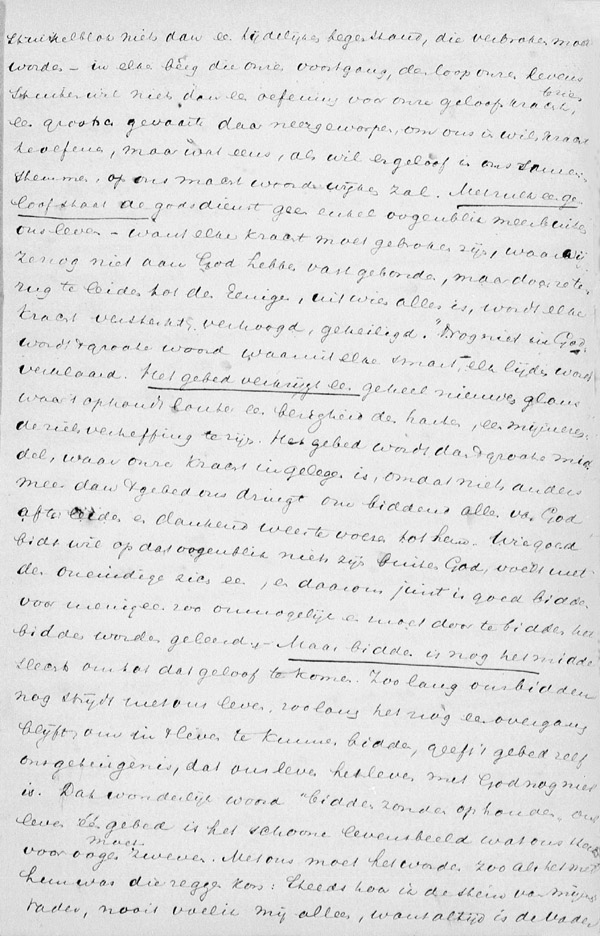 struikelblok niets dan een tijdelijke tegenstand, die verbroken moet
worden – in elke berg die onze voortgang, den loop onzes levens
niets dan een oefening voor onze geloofskracht,
een groote gevaarte daar neergeworpen, om ons in wilskracht
te oefenen, maar wat eens, als wil en geloof in ons samen-
stemmen, op ons machtwoord wijken zal. Met zulk een ge-
loof staat de godsdienst geen enkel oogenblik meer buiten
ons leven – want elke kracht moet gebroken zijn, waar wij
ze nog niet aan God hebben vastgebonden, maar door ze te-
rug te leiden tot den Eenige, uit wien alles is, wordt elke
kracht versterkt, verhoogd, geheiligd. "Nog niet in God"
wordt 't groote woord waaruit elke smart, elk lijden wordt
verklaard. Het gebed verkrijgt een geheel nieuwen glans
waar 't ophoudt louter een bezigheid des harten, een
de zielsverheffing te zijn. Het gebed wordt dan 't groote mid-
del, waar onze kracht in gelegen is, omdat niets anders
meer dan 't gebed ons dringt om biddend alles van God
af te leiden en dankend weer te voeren tot hem. Wie goed
bidt wil op dat oogenblik niets zijn buiten God, voelt met
den oneindige zich een, en daarom juist is goed bidden
voor menigeen zoo onmogelijk en moet door te bidden het
bidden worden geleerd. – Maar bidden is nog het midden
slechts om tot dat geloof te komen. Zoolang ons bidden
nog strijdt met ons leven, zoolang het nog een overgang
blijft, om in 't leven te kunnen bidden, geeft 't gebed zelf
ons getuigenis, dat ons leven het leven met God nog niet
is. Dat wonderlijk woord "bidden zonder ophouden", ons
leven één gebed is het schoone levensbeeld wat ons steeds
voor oogen moet zweven. Met ons moet het worden zoo als het met
hem was die zeggen kon: Steeds hoor ik de stem van mijnen
Vader, nooit voel ik mij alleen, want altijd is de Vader